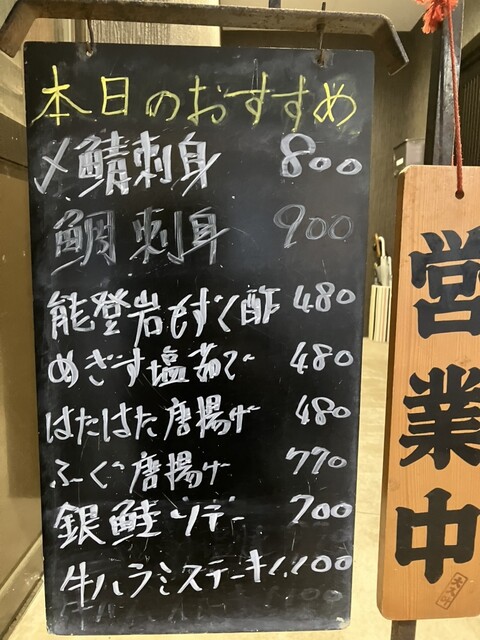 本日のおすすめ
〆鯖刺身 800
鯛刺身 900
能登岩もずく酢 480
めぎす塩茹で 480
はたはた唐揚げ 480
ふぐ唐揚げ 770
銀鮭ソテー 700
牛ハラミステーキ 1,100
営業中